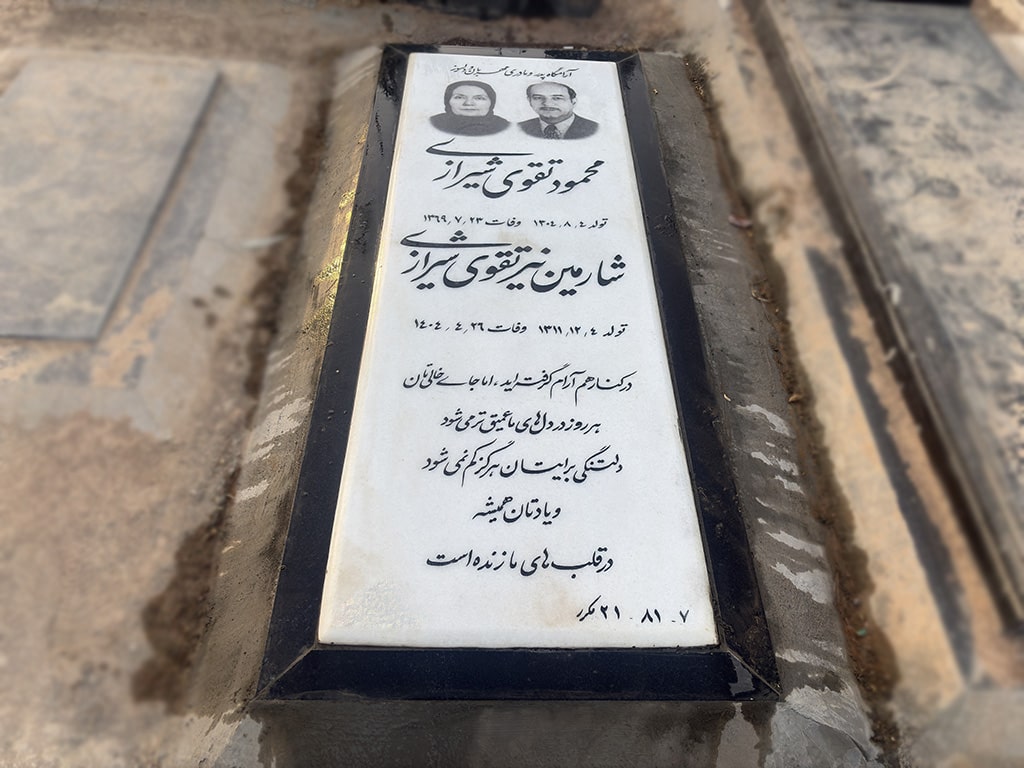 آرامگاه پدر و مادری مهربان و دلسوز
محمود تقوی شیرازی
تولد ۱۳۰۴٫۸٫۴ وفات ۱۳۶۹٫۷٫۲۳
شارمین نیر تقوی شیرازی
تولد ۱۳۱۱٫۱۲٫۴ وفات ۱۴۰۴٫۴٫۲۶
در کنار هم آرام گرفته اید، اما جای خالی تان
هر روز در دل های ما عمیق تر می شود
دلتنگی برایتان هرگز کم نمی شود
و یادتان همیشه
در قلب های ما زنده است
۷ - ۸۱ - ۲۱ مکرر